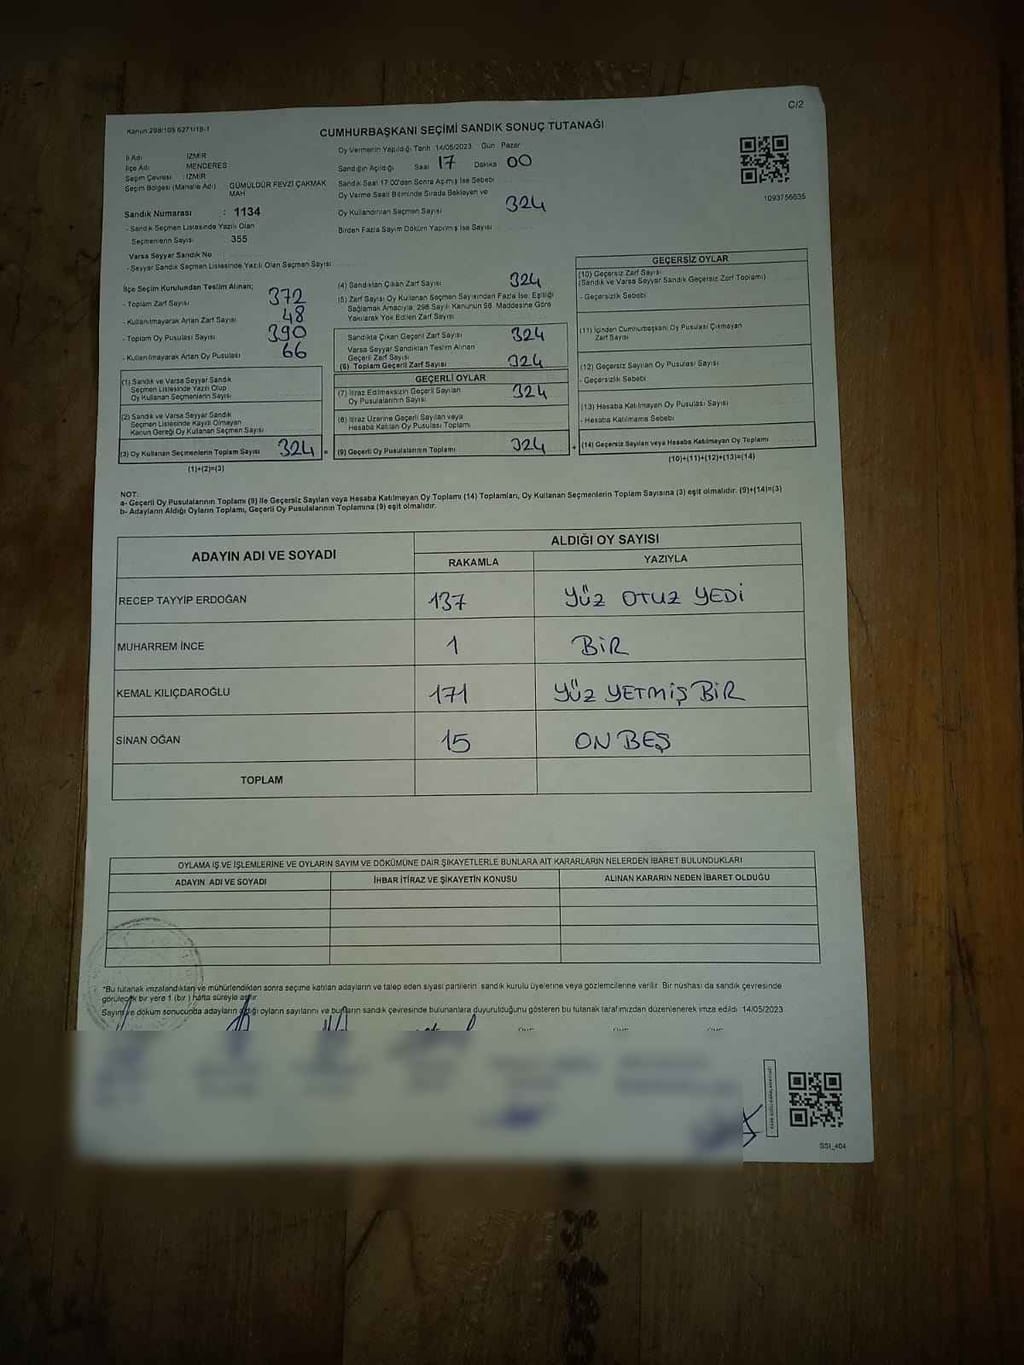 C/2
Kanun 298/105 6271/18-1
CUMHURBAŞKANI SEÇİMİ SANDIK SONUÇ TUTANAĞI
İl Adı : İZMİR
İlçe Adı : MENDERES
Seçim Çevresi : İZMİR
Seçim Bölgesi (Mahalle Adı) : GÜMÜLDÜR FEVZİ ÇAKMAK MAH
Sandık Numarası : 1134
- Sandık Seçmen Listesinde Yazılı Olan
Seçmenlerin Sayısı 355
Varsa Seyyar Sandık No
- Seyyar Sandık Seçmen Listesinde Yazılı Olan Seçmen Sayısı
Oy Vermenin Yapıldığı Tarih 14/05/2023 Gün Pazar
Sandığın Açıldığı Saat 17 Dakika 00
Sandık Saat 17:00'den Sonra Açılmış İse Sebebi
Oy Verme Saati Bitiminde Sırada Bekleyen ve
Oy Kullandırılan Seçmen Sayısı 324
Birden Fazla Sayım Döküm Yapılmış İse Sayısı
1093756635
İlçe Seçim Kurulundan Teslim Alınan;
- Toplam Zarf Sayısı 372
- Kullanılmayarak Artan Zarf Sayısı 48
- Toplam Oy Pusulası 390
- Kullanılmayarak Artan Oy Pusulası 66
(1) Sandık ve Varsa Seyyar Sandık
Seçmen Listesinde Yazılı Olup
Oy Kullanan Seçmenlerin Sayısı
(2) Sandık ve Varsa Seyyar Sandık
Seçmen Listesinde Kayıtlı Olmayan
Kanun Gereği Oy Kullanan Seçmen Sayısı
(3) Oy Kullanan Seçmenlerin Toplam Sayısı 324 =
(1)+(2)=(3)
(4) Sandıktan Çıkan Zarf Sayısı 324
(5) Zarf Sayısı Oy Kullanan Seçmen Sayısından Fazla İse; Eşitliği
Sağlamak Amacıyla, 298 Sayılı Kanunun 98. Maddesine Göre
Yakılarak Yok Edilen Zarf Sayısı
Sandıkta Çıkan Geçerli Zarf Sayısı 324
Varsa Seyyar Sandıktan Teslim Alınan
Geçerli Zarf Sayısı
(6) Toplam Geçerli Zarf Sayısı 324
GEÇERLİ OYLAR
(7) İtiraz Edilmeksizin Geçerli Sayılan
Oy Pusulalarının Sayısı 324
(8) İtiraz Üzerine Geçerli Sayılan veya
Hesaba Katılan Oy Pusulası Toplamı
(9) Geçerli Oy Pusulalarının Toplamı 324 +
GEÇERSİZ OYLAR
(10) Geçersiz Zarf Sayısı
(Sandık ve Varsa Seyyar Sandık Geçersiz Zarf Toplamı)
- Geçersizlik Sebebi
(11) İçinden Cumhurbaşkanı Oy Pusulası Çıkmayan
Zarf Sayısı
(12) Geçersiz Sayılan Oy Pusulası Sayısı
- Geçersizlik Sebebi
(13) Hesaba Katılmayan Oy Pusulası Sayısı
- Hesaba Katılmama Sebebi
(14) Geçersiz Sayılan veya Hesaba Katılmayan Oy Toplamı
(10)+(11)+(12)+(13)=(14)
NOT:
a- Geçerli Oy Pusulalarının Toplamı (9) ile Geçersiz Sayılan veya Hesaba Katılmayan Oy Toplamı (14) Toplamları, Oy Kullanan Seçmenlerin Toplam Sayısına (3) eşit olmalıdır. (9)+(14)=(3)
b- Adayların Aldığı Oyların Toplamı, Geçerli Oy Pusulalarının Toplamına (9) eşit olmalıdır.
ADAYIN ADI VE SOYADI ALDIĞI OY SAYISI
RAKAMLA YAZIYLA
RECEP TAYYİP ERDOĞAN 137 YÜZ OTUZ YEDİ
MUHARREM İNCE 1 BİR
KEMAL KILIÇDAROĞLU 171 YÜZ YETMİŞ BİR
SİNAN OĞAN 15 ON BEŞ
TOPLAM
OYLAMA İŞ VE İŞLEMLERİNE VE OYLARIN SAYIM VE DÖKÜMÜNE DAİR ŞİKAYETLERLE BUNLARA AİT KARARLARIN NELERDEN İBARET BULUNDUKLARI
ADAYIN ADI VE SOYADI İHBAR İTİRAZ VE ŞİKAYETİN KONUSU ALINAN KARARIN NEDEN İBARET OLDUĞU
*Bu tutanak imzalandıktan ve mühürlendikten sonra seçime katılan adayların ve talep eden siyasi partilerin sandık kurulu üyelerine veya gözlemcilerine verilir. Bir nüshası da sandık çevresinde
görülecek bir yere 1 (bir) hafta süreyle asılır.
Sayım ve döküm sonucunda adayların aldığı oyların sayılarını ve bunların sandık çevresinde bulunanlara duyurulduğunu gösteren bu tutanak tarafımızdan düzenlenerek imza edildi. 14/05/2023
SSI_404